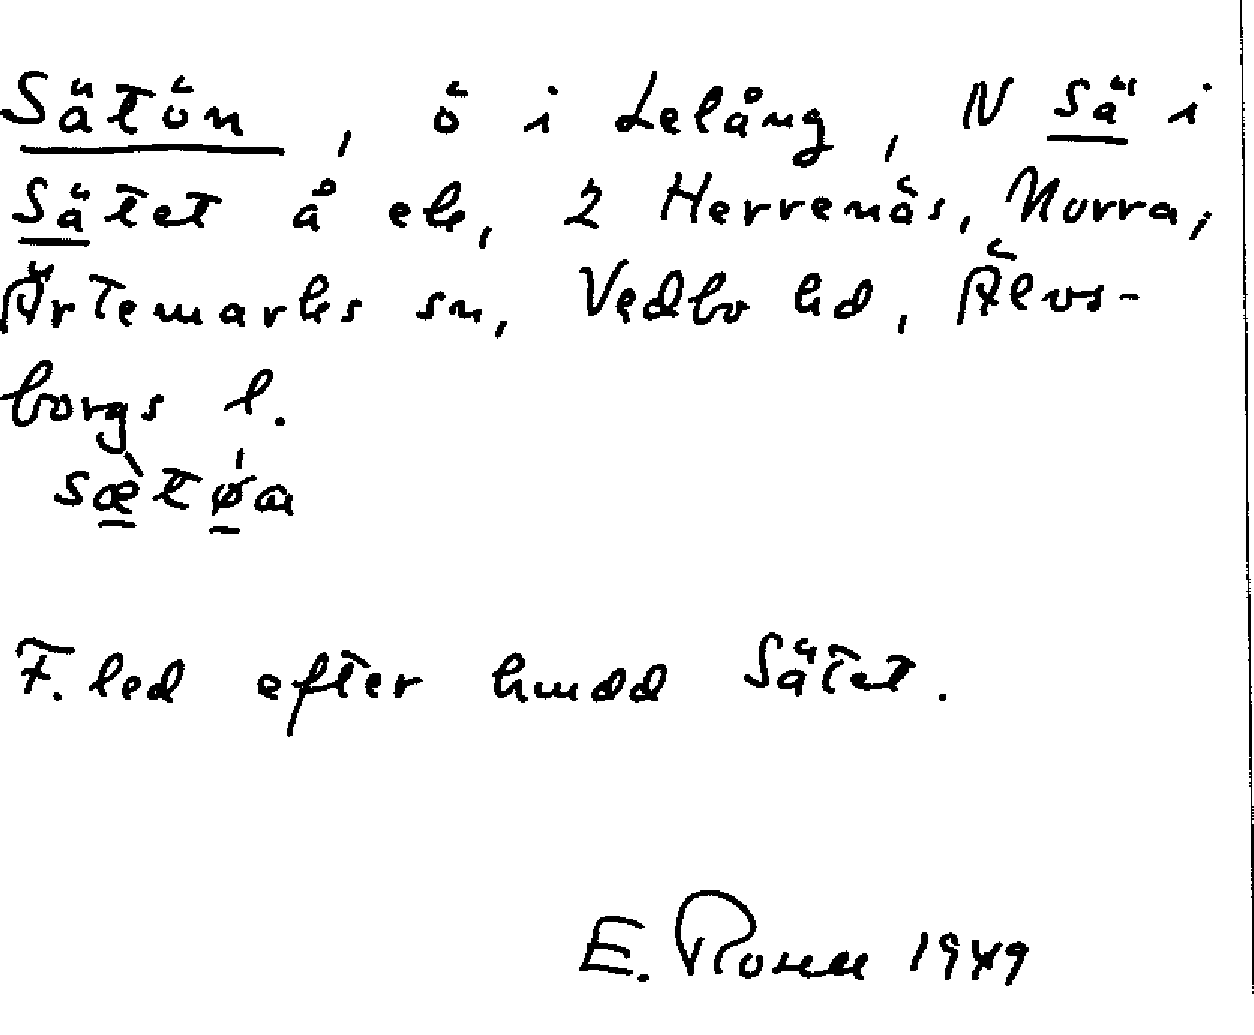 Sätön, ö i Lelång, N Sä i
Sätet å ek, 2 Herrenäs, Norra,
Ärtemarks sn, Vedbo hd, Älvs-
borgs l.
sæ̀tø̍a
F. led efter hmdd Sätet.
E. 1949